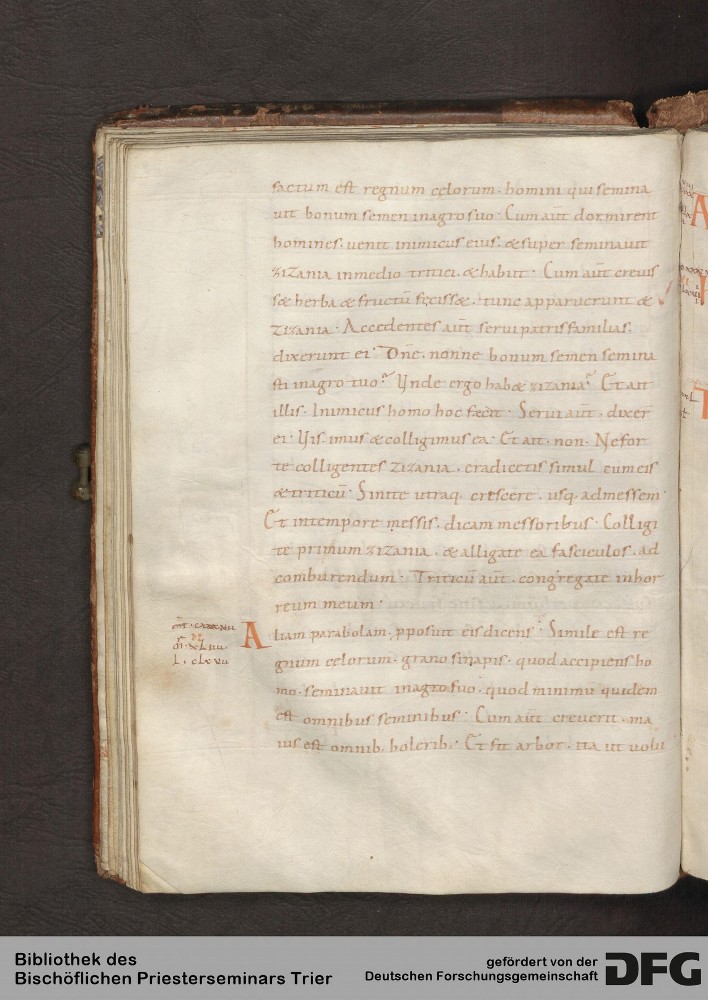 factum est regnum celorum · homini qui semina
uit bonum semen in agro suo · Cum aut̅ dormirent
homines · uenit inimicus eius · & super seminauit
zizania in medio tritici · & habiit · Cum aut̅ creuis
s& herba & fructu̅ feciss& · tunc apparuerunt &
zizania · Accedentes aut̅ serui patris familias ·
dixerunt ei · Dn̅e · nonne bonum semen semina
sti in agro tuo? Unde ergo hab& zizania? Et ait
illis · Inimicus homo hoc fecit · Serui aut̅ · dixer̅
ei · Uis imus & colligimus ea · Et ait · non · Ne for
te colligentes zizania · eradicetis simul cum eis
& triticu̅ · Sinite utraq· crescere · usq· ad messem ·
Et in tempore messis · dicam messoribus · Colligi
te primum zizania · & alligate ea fasciculos · ad
comburendum · Triticu̅ aut̅ · congregate in hor
reum meum ·
Aliam parabolam · p̱posuit eis dicens · Simile est re
gnum celorum · grano sinapis · quod accipiens ho
mo · seminauit in agro suo · quod minimu̅ quidem
est omnibus seminibus · Cum aut̅ creuerit · ma
ius est omnib· holerib· · Et fit arbor · ita ut uolu
Bibliothek des
Bischöflichen Priesterseminars Trier
gefördert von der
Deutschen Forschungsgemeinschaft
DFG